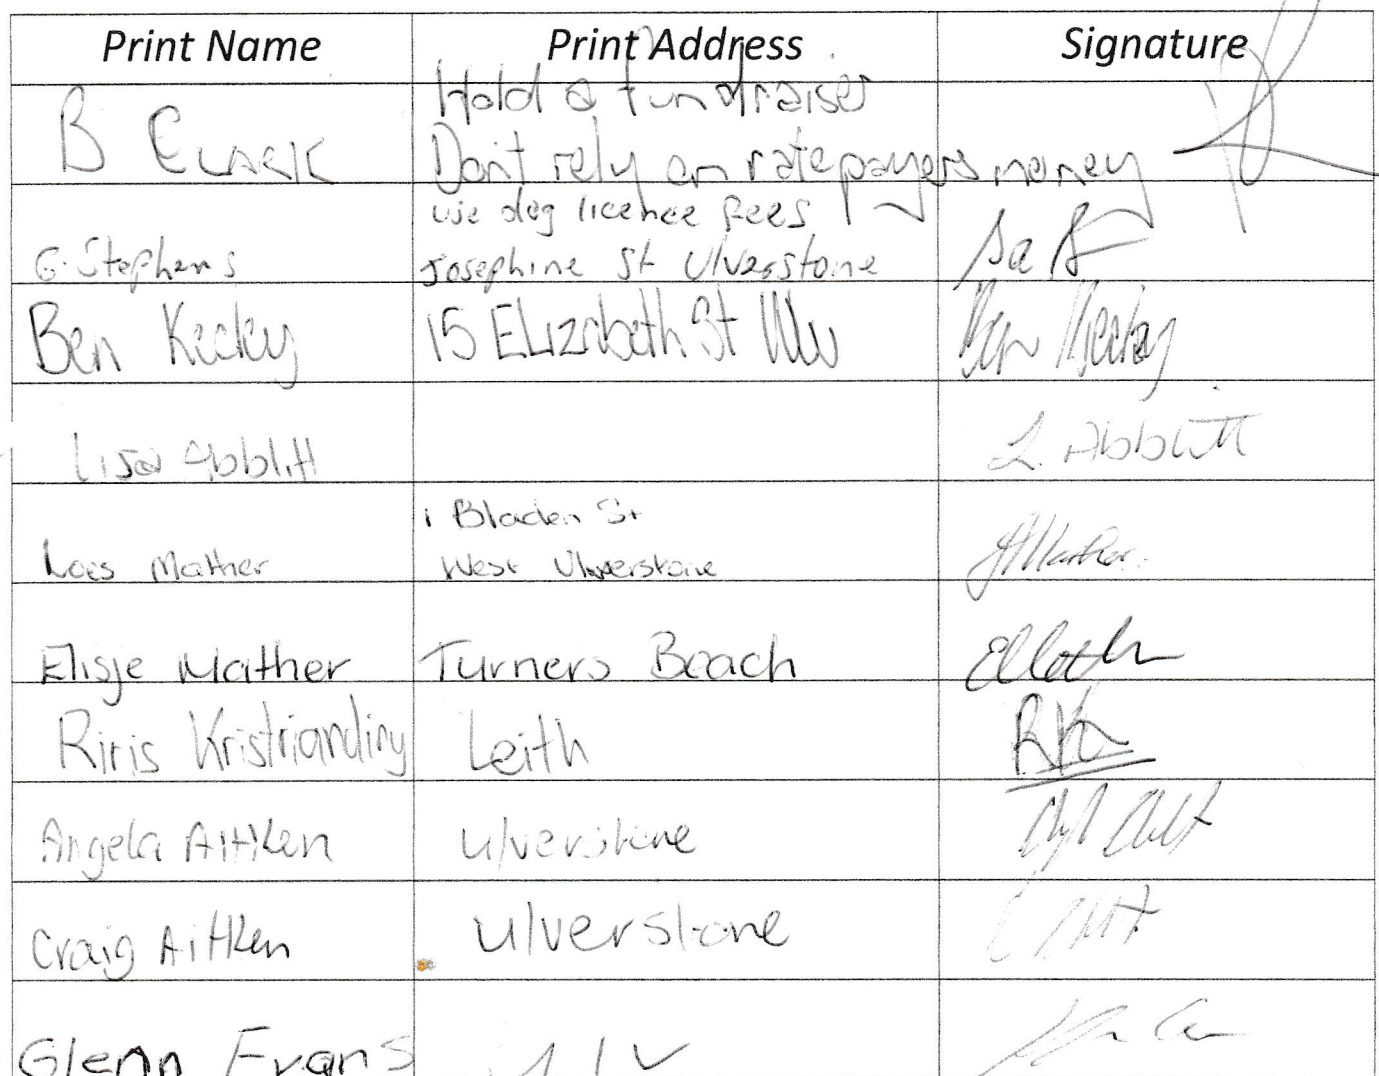 Print Name Print Address Signature
Hold a fundraiser
B Clark Don't rely on ratepayers money
use dog licence fees
G. Stephens Josephine St Ulverstone
Ben Kecley 15 Elizabeth St Ulv Ben
Lisa Abblitt L. Abblitt
1 Bladen St
Loes Mather West Ulverstone Mather
Elisje Mather Turners Beach
Riris Kristriandiny Leith
Angela Aitken Ulverstone
Craig Aitken Ulverstone
Glenn Evans Ulv